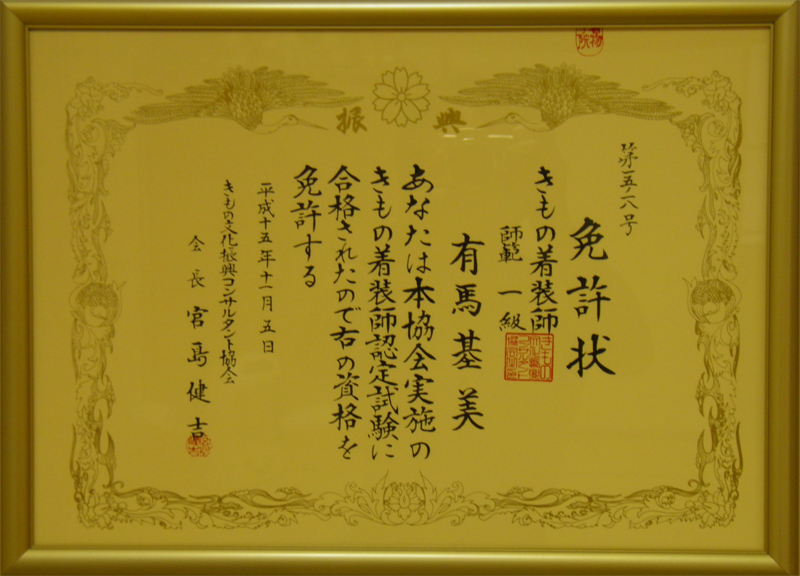 振興
第一五一八号
免許状
きもの着装師
師範 一級
有馬基美
あなたは本協会実施の
きもの着装師認定試験に
合格されたので右の資格を
免許する
平成十五年十一月五日
きもの文化振興コンサルタント協会
会長 宮島健吉